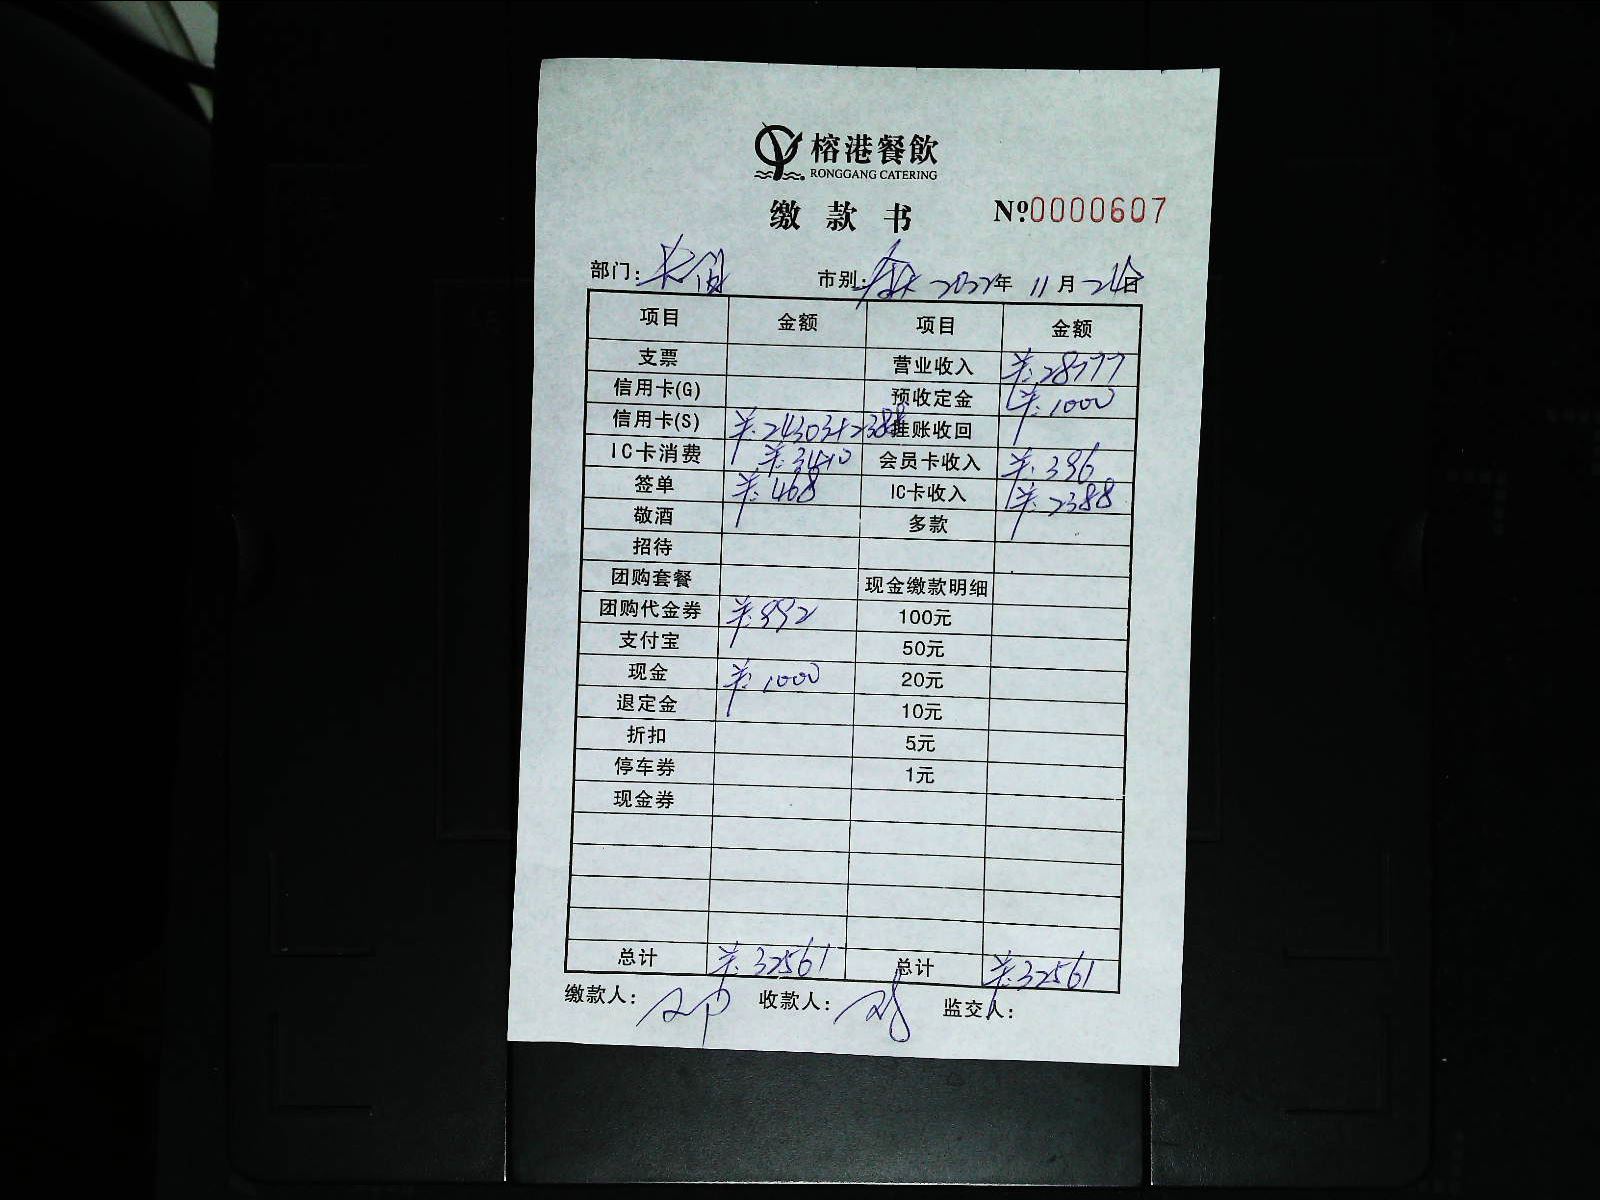 榕港餐飲
RONGGANG CATERING
缴款书 №0000607
部门: 市别: 2022年 11月24日
项目 金额 项目 金额
支票 营业收入 ¥:28777
信用卡(G) 预收定金 ¥:1000
信用卡(S) ¥:24303+2388 挂账收回
IC卡消费 ¥:3410 会员卡收入 ¥:396
签单 ¥:468 IC卡收入 ¥:2388
敬酒 多款
招待
团购套餐 现金缴款明细
团购代金券 ¥:992 100元
支付宝 50元
现金 ¥:1000 20元
退定金 10元
折扣 5元
停车券 1元
现金券
总计 ¥:32561 总计 ¥:32561
缴款人: 收款人: 监交人: